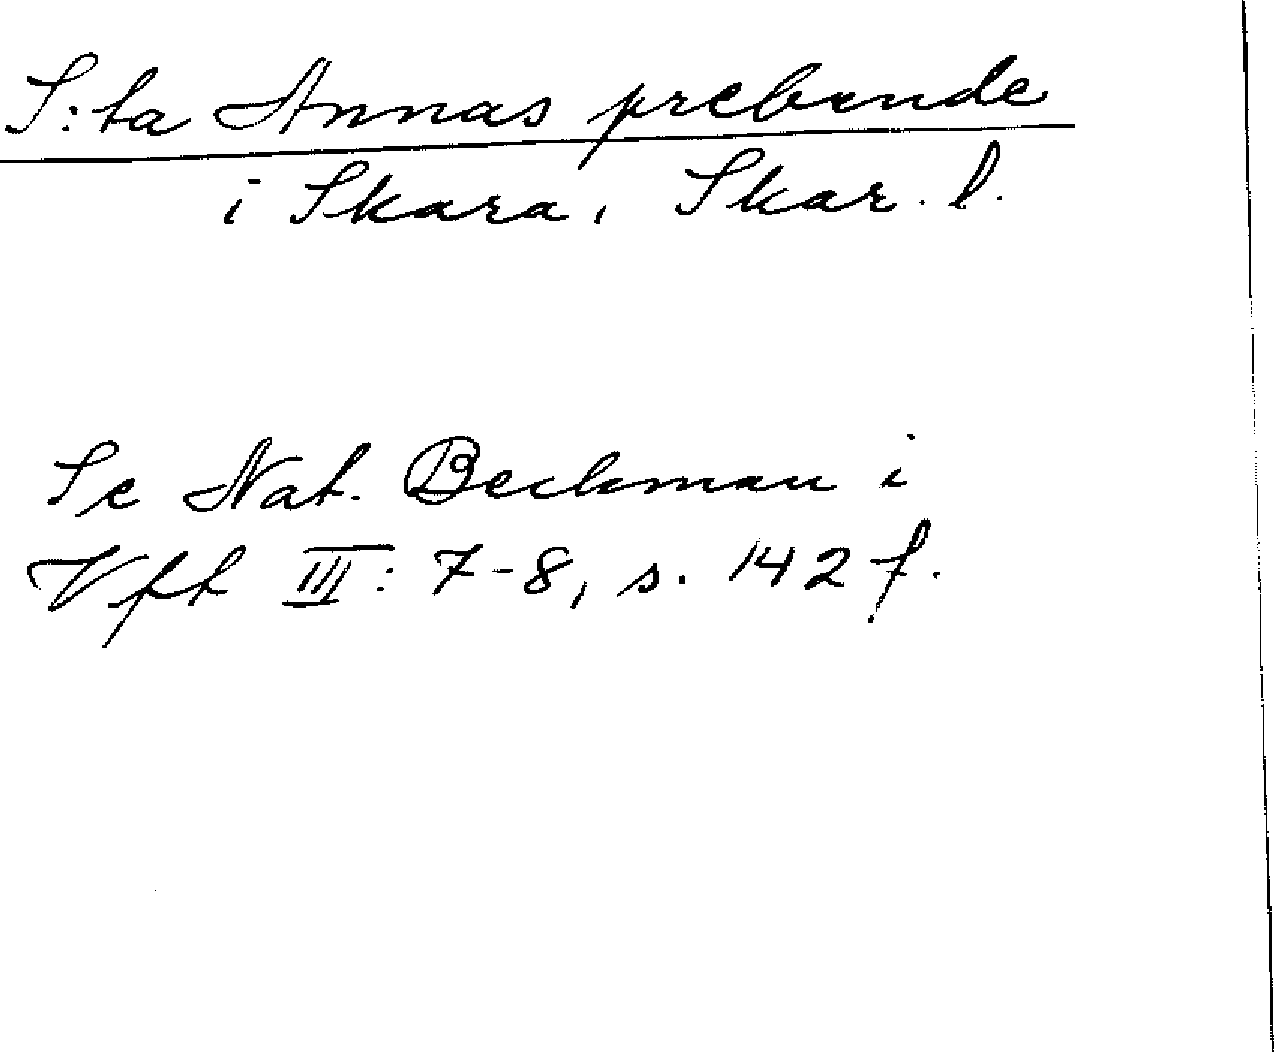 S:ta Annas prebende
i Skara, Skar. l.
Se Nat. Beckman i
Vft III: 7-8, s. 142 f.